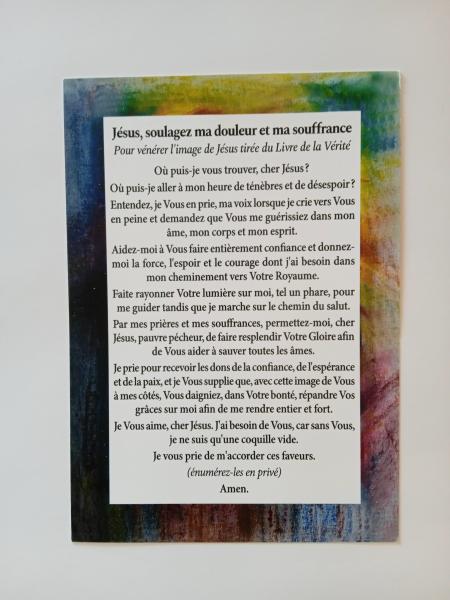 Jésus, soulagez ma douleur et ma souffrance
Pour vénérer l'image de Jésus tirée du Livre de la Vérité
Où puis-je vous trouver, cher Jésus ?
Où puis-je aller à mon heure de ténèbres et de désespoir ?
Entendez, je Vous en prie, ma voix lorsque je crie vers Vous
en peine et demandez que Vous me guérissiez dans mon
âme, mon corps et mon esprit.
Aidez-moi à Vous faire entièrement confiance et donnez-
moi la force, l'espoir et le courage dont j'ai besoin dans
mon cheminement vers Votre Royaume.
Faite rayonner Votre lumière sur moi, tel un phare, pour
me guider tandis que je marche sur le chemin du salut.
Par mes prières et mes souffrances, permettez-moi, cher
Jésus, pauvre pécheur, de faire resplendir Votre Gloire afin
de Vous aider à sauver toutes les âmes.
Je prie pour recevoir les dons de la confiance, de l'espérance
et de la paix, et je Vous supplie que, avec cette image de Vous
à mes côtés, Vous daigniez, dans Votre bonté, répandre Vos
grâces sur moi afin de me rendre entier et fort.
Je Vous aime, cher Jésus. J'ai besoin de Vous, car sans Vous,
je ne suis qu'une coquille vide.
Je vous prie de m'accorder ces faveurs.
(énumérez-les en privé)
Amen.